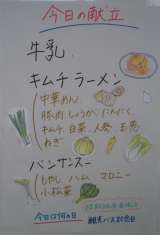 今日の献立
牛乳
キムチラーメン
中華めん
豚肉 しょうが にんにく
キムチ 白菜 人参 玉葱
ねぎ
バンサンスー
もやし ハム マロニー
小松菜
今日は何の日
観光バス記念日